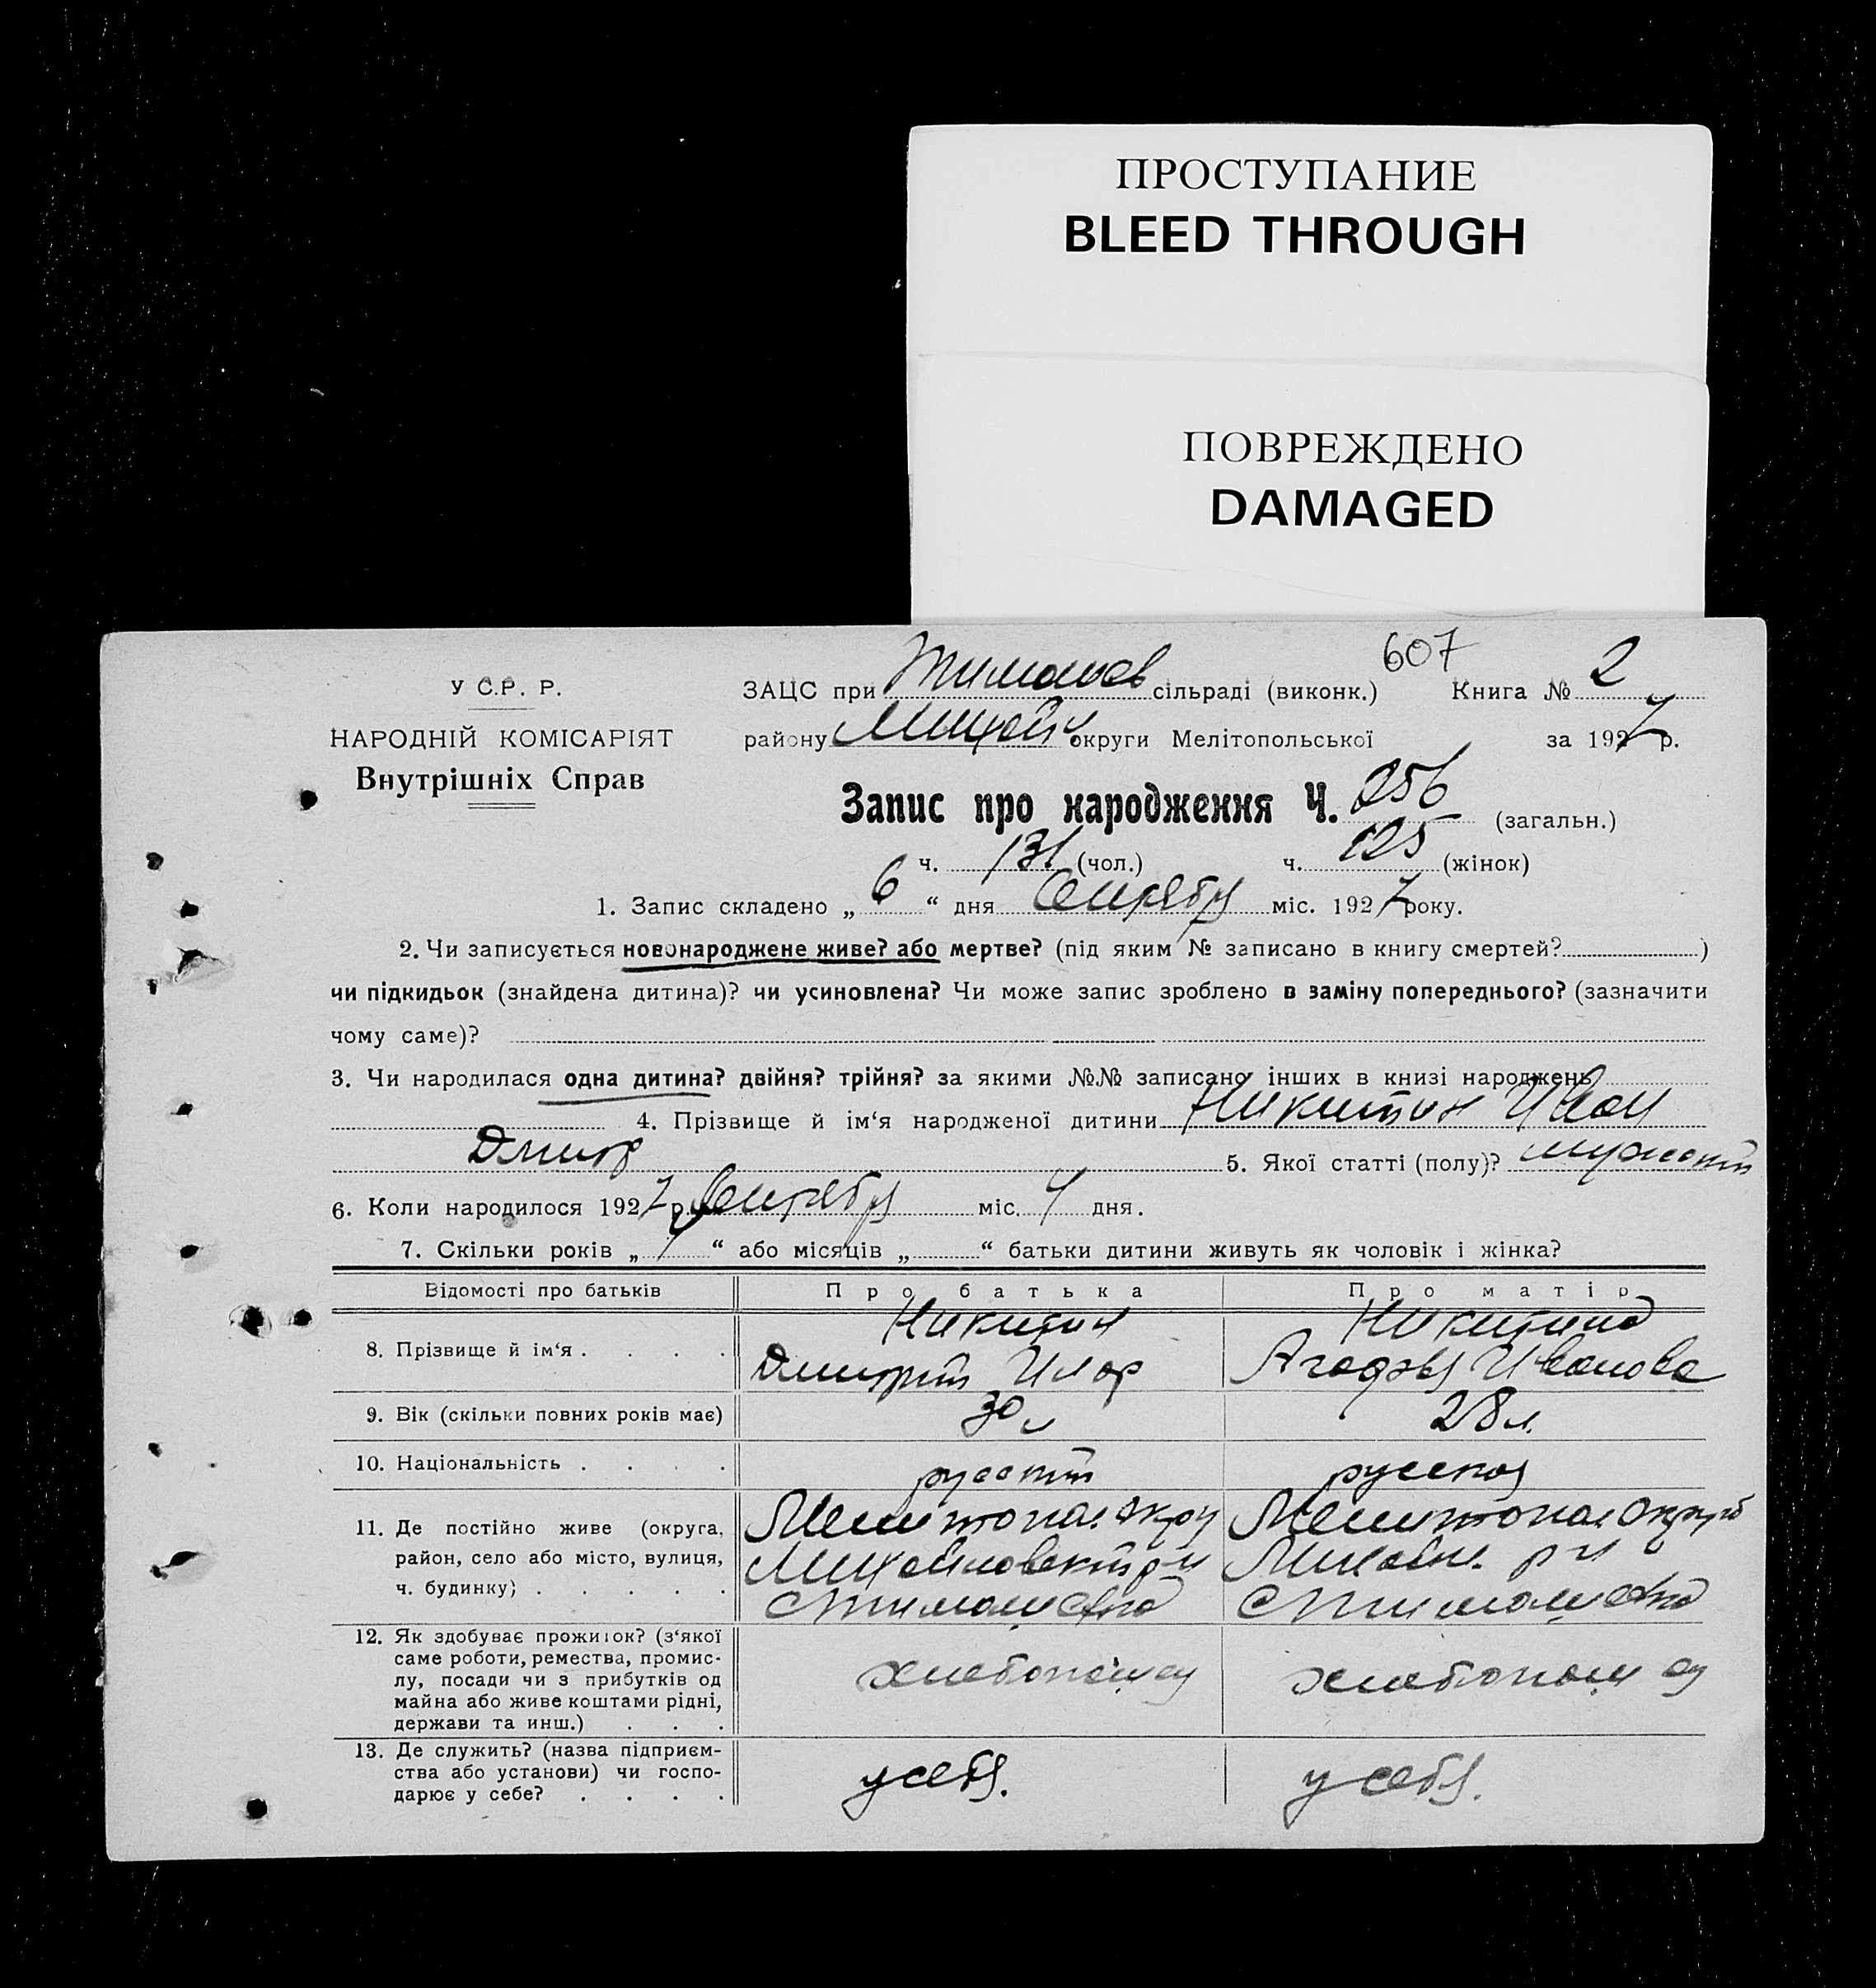 ПРОСТУПАНИЕ
BLEED THROUGH
ПОВРЕЖДЕНО
DAMAGED
607
У С.Р. Р.
ЗАЦС при Тимошев сільраді (виконк.) Книга № 2
НАРОДНІЙ КОМІСАРІЯТ
району Михайл округи Мелітопольської за 1927 р.
Внутрішніх Справ
Запис про народження Ч. 256 (загальн.)
ч. 131 (чол.) ч. 125 (жінок)
1. Запис складено „ 6 “ дня Сентября міс. 1927 року.
2. Чи записується новонароджене живе? або мертве? (під яким № записано в книгу смертей? )
чи підкидьок (знайдена дитина)? чи усиновлена? Чи може запис зроблено в заміну попереднього? (зазначити
чому саме)?
3. Чи народилася одна дитина? двійня? трійня? за якими №№ записано інших в книзі народжень
4. Прізвище й ім‘я народженої дитини Никитин Иван
Дмитр 5. Якої статті (полу)?
6. Коли народилося 1927 р. Сентября міс. 4 дня.
7. Скільки років „ 7 “ або місяців „ “ батьки дитини живуть як чоловік і жінка?
Відомості про батьків Про батька Про матір
Никитин Никитина
8. Прізвище й ім‘я . . . . Дмитрий Агафья Иванова
9. Вік (скільки повних років має) 30 л 28 л.
10. Національність . . . . русский русская
11. Де постійно живе (округа, Мелитопол. окру Мелитопол. округ
район, село або місто, вулиця, Михайловский р н Михайл. р н
ч. будинку) . . . . . С Тимошевка С Тимошевка
12. Як здобуває прожиток? (з‘якої
саме роботи, ремества, промис-
лу, посади чи з прибутків од хлебопашец хлебопашец
майна або живе коштами рідні,
держави та инш.) . . .
13. Де служить? (назва підприєм-
ства або установи) чи госпо- у себя. у себя.
дарює у себе? . . . .